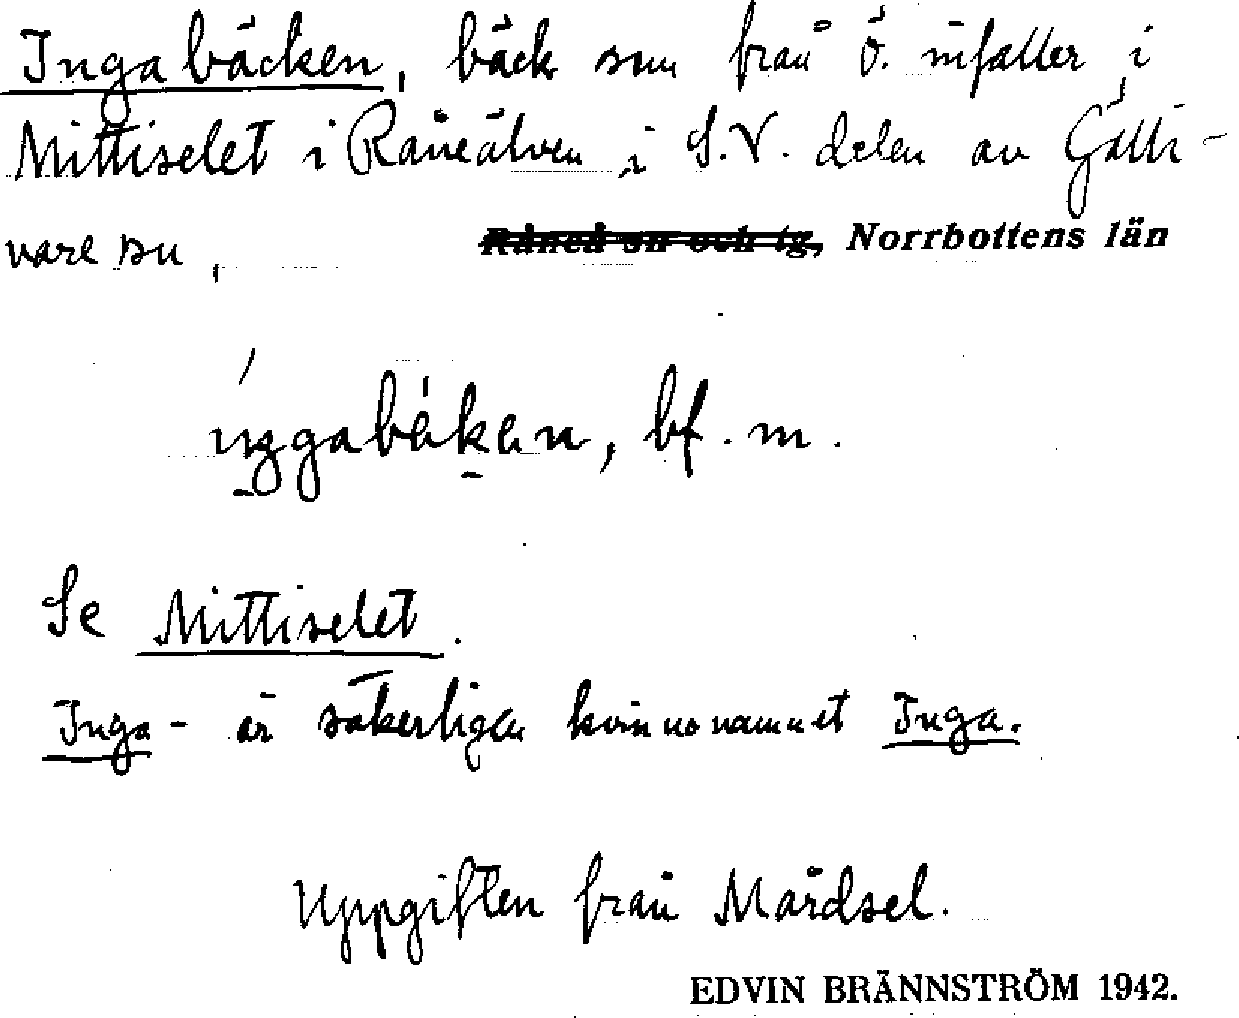 Ingabäcken, bäck som från ö. infaller i
Mittiselet i Råneälven i S.V. delen av Gälli-
vare sn,
Råneå sn och tg, Norrbottens län
íŋgabäkan, bf. m.
Se Mittiselet.
Inga- är säkerligen kvinnonamnet Inga.
Uppgiften från Mårdsel.
EDVIN BRÄNNSTRÖM 1942.